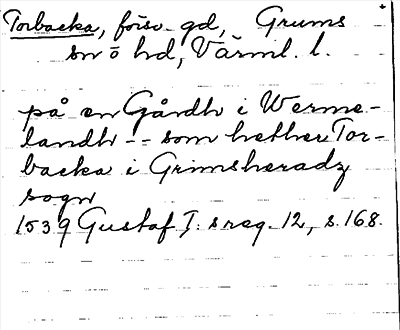 Torbacka, försv. gd, Grums
sn o hd, Värml. l.
på en Gårdh i Werme-
landh -- som hether Tor-
backa i Grimsheradz
sogn
1539 Gustaf I: s reg. 12, s. 168.